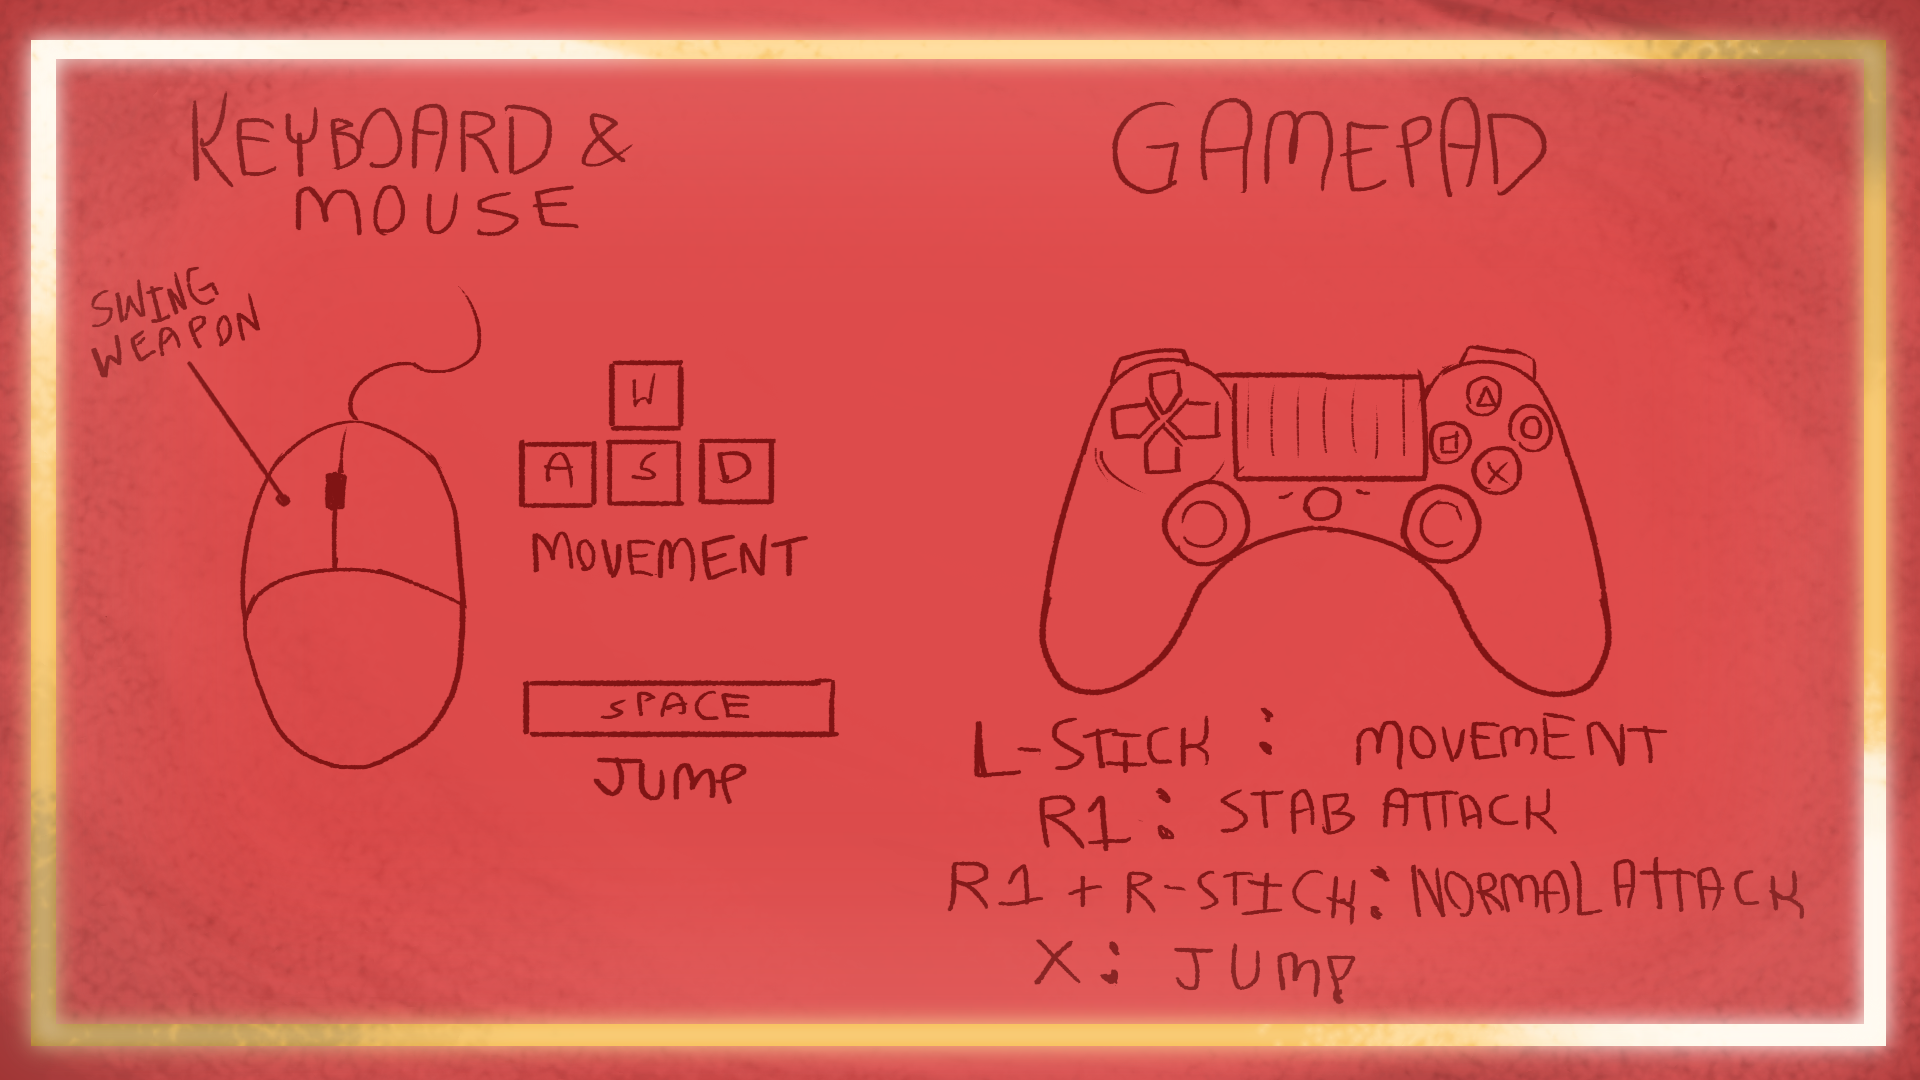 KEYBOARD &
MOUSE
SWING
WEAPON
W
A S D
MOVEMENT
SPACE
JUMP
GAMEPAD
X
L-STICK : MOVEMENT
R1 : STAB ATTACK
R1 + R-STICK : NORMAL ATTACK
X : JUMP